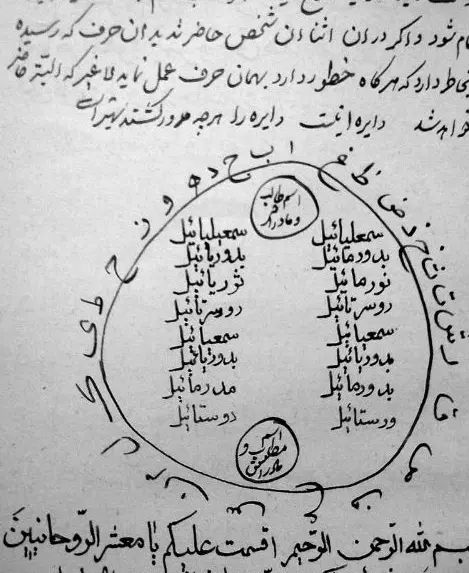 تمام شود و اگر در ان اثنا ان شخص حاضر نشد بدان حرف که رسیده
بخاطر دارد که هر گاه خطور دارد بهمان حرف عمل نماید لاغیر که البته حاضر
خواهد شد دایره اینست دایره را هر چه مدور کشند بهتر است
ا ب ج د ه و ز ح ط ی ک ل م ن س ع ف ص ق ر ش ت ث خ ذ ض ظ غ
اسم طالب
و مادر او
سمعلیائیل سمعیلیائیل
بدودمائیل بدودیائیل
نورمائیل نوریائیل
دوسرتائیل دوسرتائیل
سمعیائیل سمعیائیل
بدودیائیل بدودیائیل
بدورمائیل مدرمائیل
ورستائیل دوستائیل
اسم
مطلوب و
مادر اش
بسم الله الرحمن الرحیم اقسمت علیکم یا معشر الروحانیین